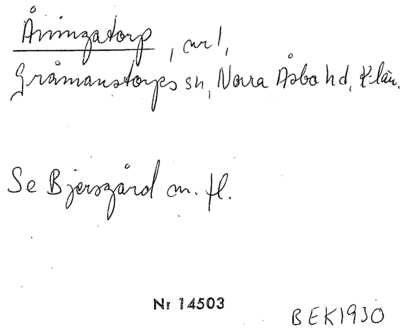 Åningatorp, nr 1,
Gråmanstorps sn, Norra Åsbo hd, K län.
Se Bjersgård m. fl.
Nr 14503
BEK1930